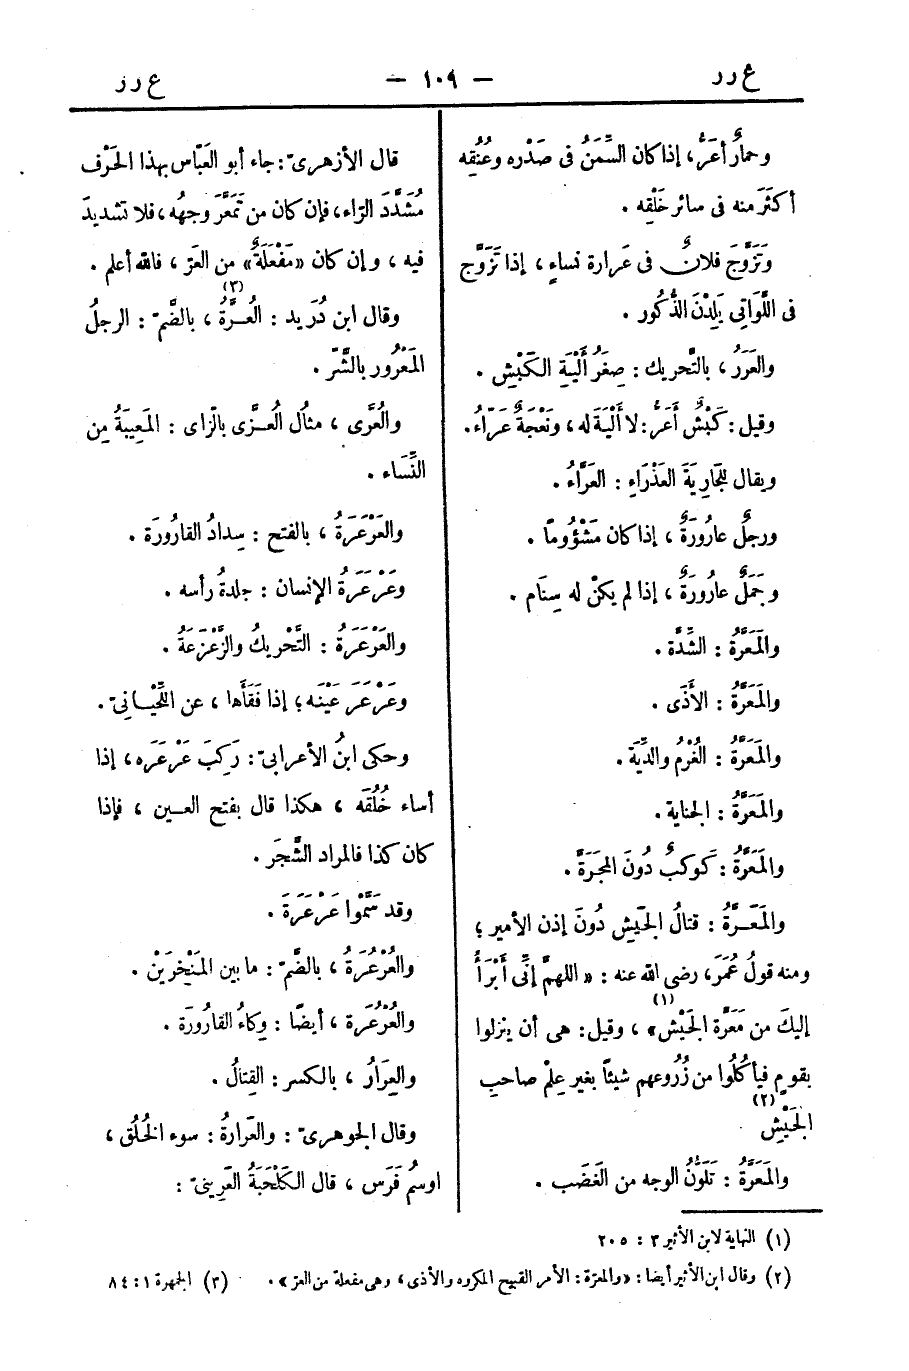 ع ر ر
— ١٠٩ —
ع ر ز
وحمارٌ أعَرُّ، إذا كان السِّمَنُ فى صَدْره وعُنُقِه
أكثَرَ منه فى سائر خَلْقِه .
وتَزَوَّجَ فلانٌ فى عَرارة نساءٍ ، إذا تَزَوَّج
فى اللَّوَاتِى يَلِدْنَ الذُّكُور .
والعَرَرُ ، بالتَّحريك : صِغَرُ أَلْيَةِ الكَبْشِ .
وقيل : كَبْشٌ أَعَرُّ : لا أَلْيَةَ له ، ونَعْجَةٌ عَرّاءُ.
ويقال للجَارِيَةِ العَذْرَاءِ : العَرَّاءُ .
ورجلٌ عارُورَةٌ ، إذا كان مَشْؤُومًا .
وجَمَلٌ عارُورَةٌ ، إذا لم يكنْ له سِنَام .
والمَعَرَّةُ : الشِّدَّة .
والمَعَرَّةُ : الأَذَى .
والمَعَرَّةُ : الغُرْمُ والدِّيَة .
والمَعَرَّةُ : الجناية .
والمَعَرَّةُ : كَوكبٌ دُونَ المَجَرَّة .
والمَعَرَّةُ : قتالُ الجَيش دُونَ إذن الأمير ؛
ومنه قولُ عُمَرَ، رضى الله عنه : « اللهمَّ إنِّى أَبْرَأُ
إليكَ من مَعَرَّة الجَيْش»(١) ، وقيل : هى أن ينزلوا
بقومٍ فيأكُلُوا من زُرُوعهم شيئًا بغير عِلْم صاحبِ
الجَيْشِ(٢)
والمَعَرَّةُ : تَلَوُّنُ الوجه من الغَضَب .
قال الأزهرىّ : جاء أبو العَبّاس بهذا الحَرْف
مُشَدَّدَ الراء، فإن كان من تَمَعَّرَ وجهُه ، فلا تشديدَ
فيه ، وإن كان «مَفْعَلَةً» من العَرّ ، فالله أعلم .
وقال ابن دُرَيد : العُرَّةُ(٣) ، بالضَّمّ : الرجلُ
المَعْرُور بالشَّرّ .
والعُرَّى ، مثالُ العُزَّى بالزاى : المَعِيبَةُ مِن
النِّسَاء .
والعَرْعَرَةُ ، بالفتح : سِدادُ القارُورَة .
وعَرْعَرَةُ الإنسان : جلدةُ رأسه .
والعَرْعَرَةُ : التَّحْريكُ والزَّعْزَعَةُ .
وعَرْعَرَ عَيْنَه ؛ إذا فَقَأَها ، عن اللِّحْيانىّ .
وحكى ابنُ الأعرابىّ : رَكِبَ عَرْعَرَه ، إذا
أساء خُلُقَه ، هكذا قال بفتح العين ، فإذا
كان كذا فالمراد الشَّجَر .
وقد سَمَّوْا عَرْعَرَةَ .
والعُرْعُرَةُ ، بالضَّمّ : ما بين المَنْخِرَيْن .
والعُرْعُرَة ، أيضًا : وِكاءُ القارُورَة .
والعِرَارُ ، بالكسر : القِتالُ .
وقال الجوهرىّ : والعَرارةُ : سوء الخُلُق ،
اوسمُ فَرَس ، قال الكَلْحَبَةُ العَرِينىّ :
(١) النهاية لابن الأثير ٣ : ٢٠٥
(٢) وقال ابن الأثير أيضا : «والمعرّة : الأمر القبيح المكروه والأذى ، وهى مفعلة من العرّ» . (٣) الجمهرة ١ : ٨٤